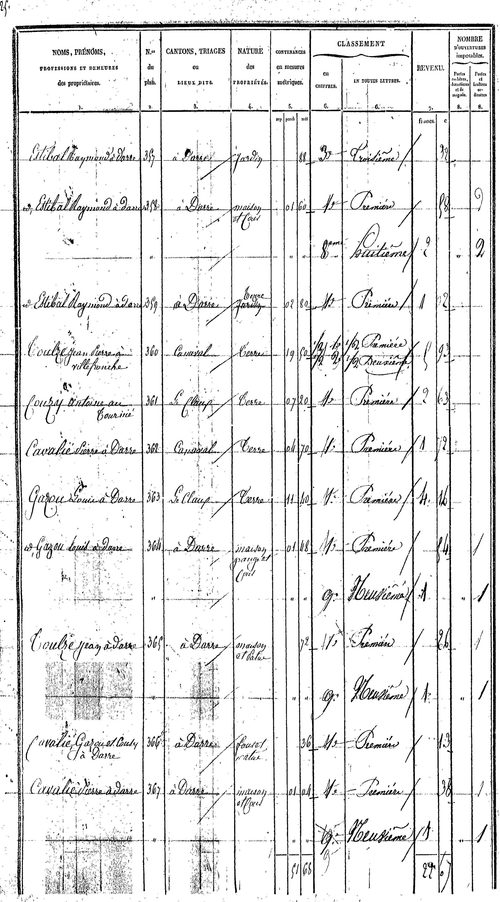 NOMS, PRÉNOMS, PROFESSIONS ET DEMEURES des propriétaires. 1.
N.os du plan. 2.
CANTONS, TRIAGES ou LIEUX DITS. 3.
NATURE des PROPRIÉTÉS. 4.
CONTENANCES en mesures métriques. 5.
CLASSEMENT
en CHIFFRES. 6.
EN TOUTES LETTRES. 6.
REVENU. 7.
NOMBRE D'OUVERTURES imposables.
8. 8.
francs. c
Estibal Raymond à Darre 357 à Darre Jardin 88 3e Troisième 32
id Estibal Raymond à Darre 358 à Darre maison et Cour 01 60 1re Première 58 2
8ème huitième 2 " 2
id Estibal Raymond à Darre 359 à Darre Terre Jardin 02 80 1re Première 1 02
Toulze jean Pierre à villefranche 360 Canaval Terre 19 50 1/2 1re 1/2 2e 1/2 Première 1/2 Deuxième 5 93
Couzy Antoine au Tournié 361 Le Claup Terre 07 20 1re Première 2 63
Cavalié Pierre à Darre 362 Canaval Terre 04 70 1re Première 1 72
Gazou Louis à Darre 363 Le Claup Terre 11 40 1re Première 4 16
id Gazou Louis à Darre 364 à Darre maison et Cour 01 68 1re Première 1
9e Neuvième 1 " 1
Toulze jean à darre 365 à Darre maison 72 1re Première 26 1
9e Neuvième 1 " 1
Cavalié, Gazou et Couzy à Darre 366 à Darre four et 36 1re Première 13
Cavalié Pierre à darre 367 à Darre maison et Cour 01 04 1re Première 38 1
9e Neuvième 1 " 1
51 68 27 67